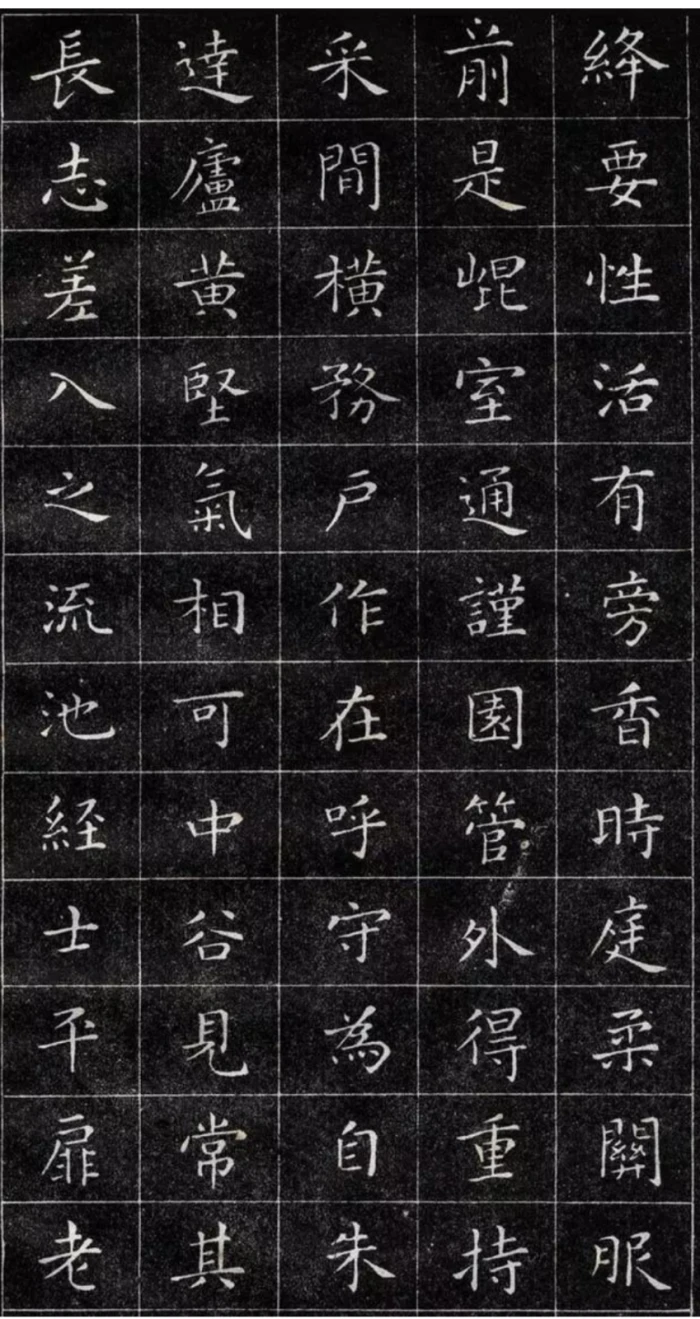 絳要性活有旁香時庭柔關服
前是崐室通謹園管外得重持
采間橫務户作在呼守為自朱
達廬黃堅氣相可中谷見常其
長志差入之流池経士平扉老